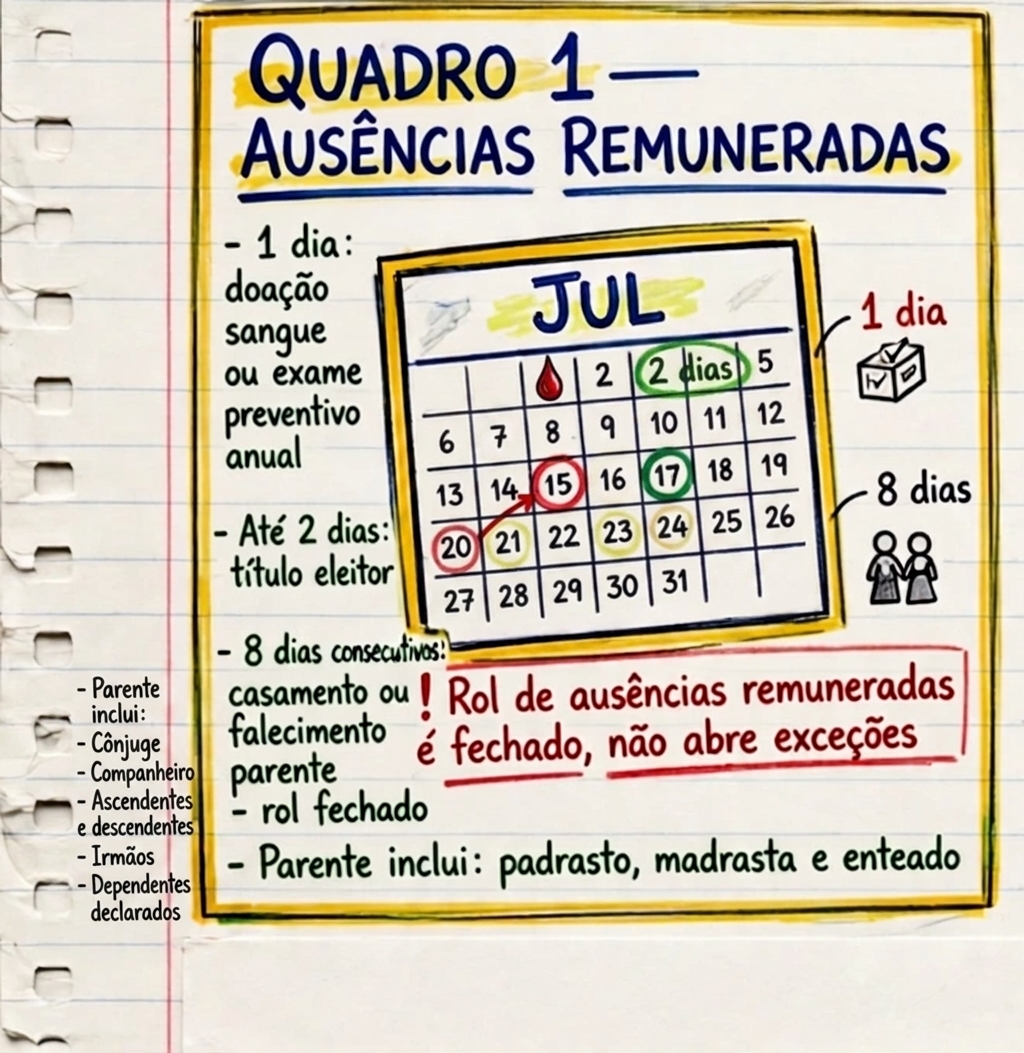 QUADRO 1 —
AUSÊNCIAS REMUNERADAS
- 1 dia:
doação
sangue
ou exame
preventivo
anual
- Até 2 dias:
título eleitor
- 8 dias consecutivos:
casamento ou
falecimento
parente
- rol fechado
- Parente inclui: padrasto, madrasta e enteado
JUL
2 2 dias 5
6 7 8 9 10 11 12
13 14 15 16 17 18 19
20 21 22 23 24 25 26
27 28 29 30 31
1 dia
8 dias
! Rol de ausências remuneradas
é fechado, não abre exceções
- Parente
inclui:
- Cônjuge
- Companheiro
- Ascendentes
e descendentes
- Irmãos
- Dependentes
declarados